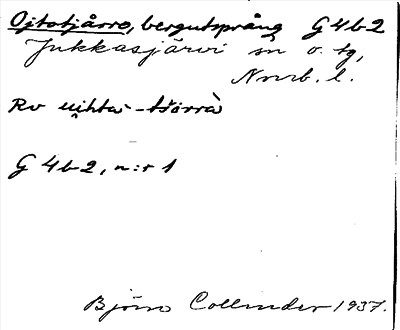 Ojtotjårro, bergutsprång G4b2
Jukkasjärvi sn o. tg,
Norrb. l.
Rv
G 4b2, n:r 1
Björn Collinder 1937.